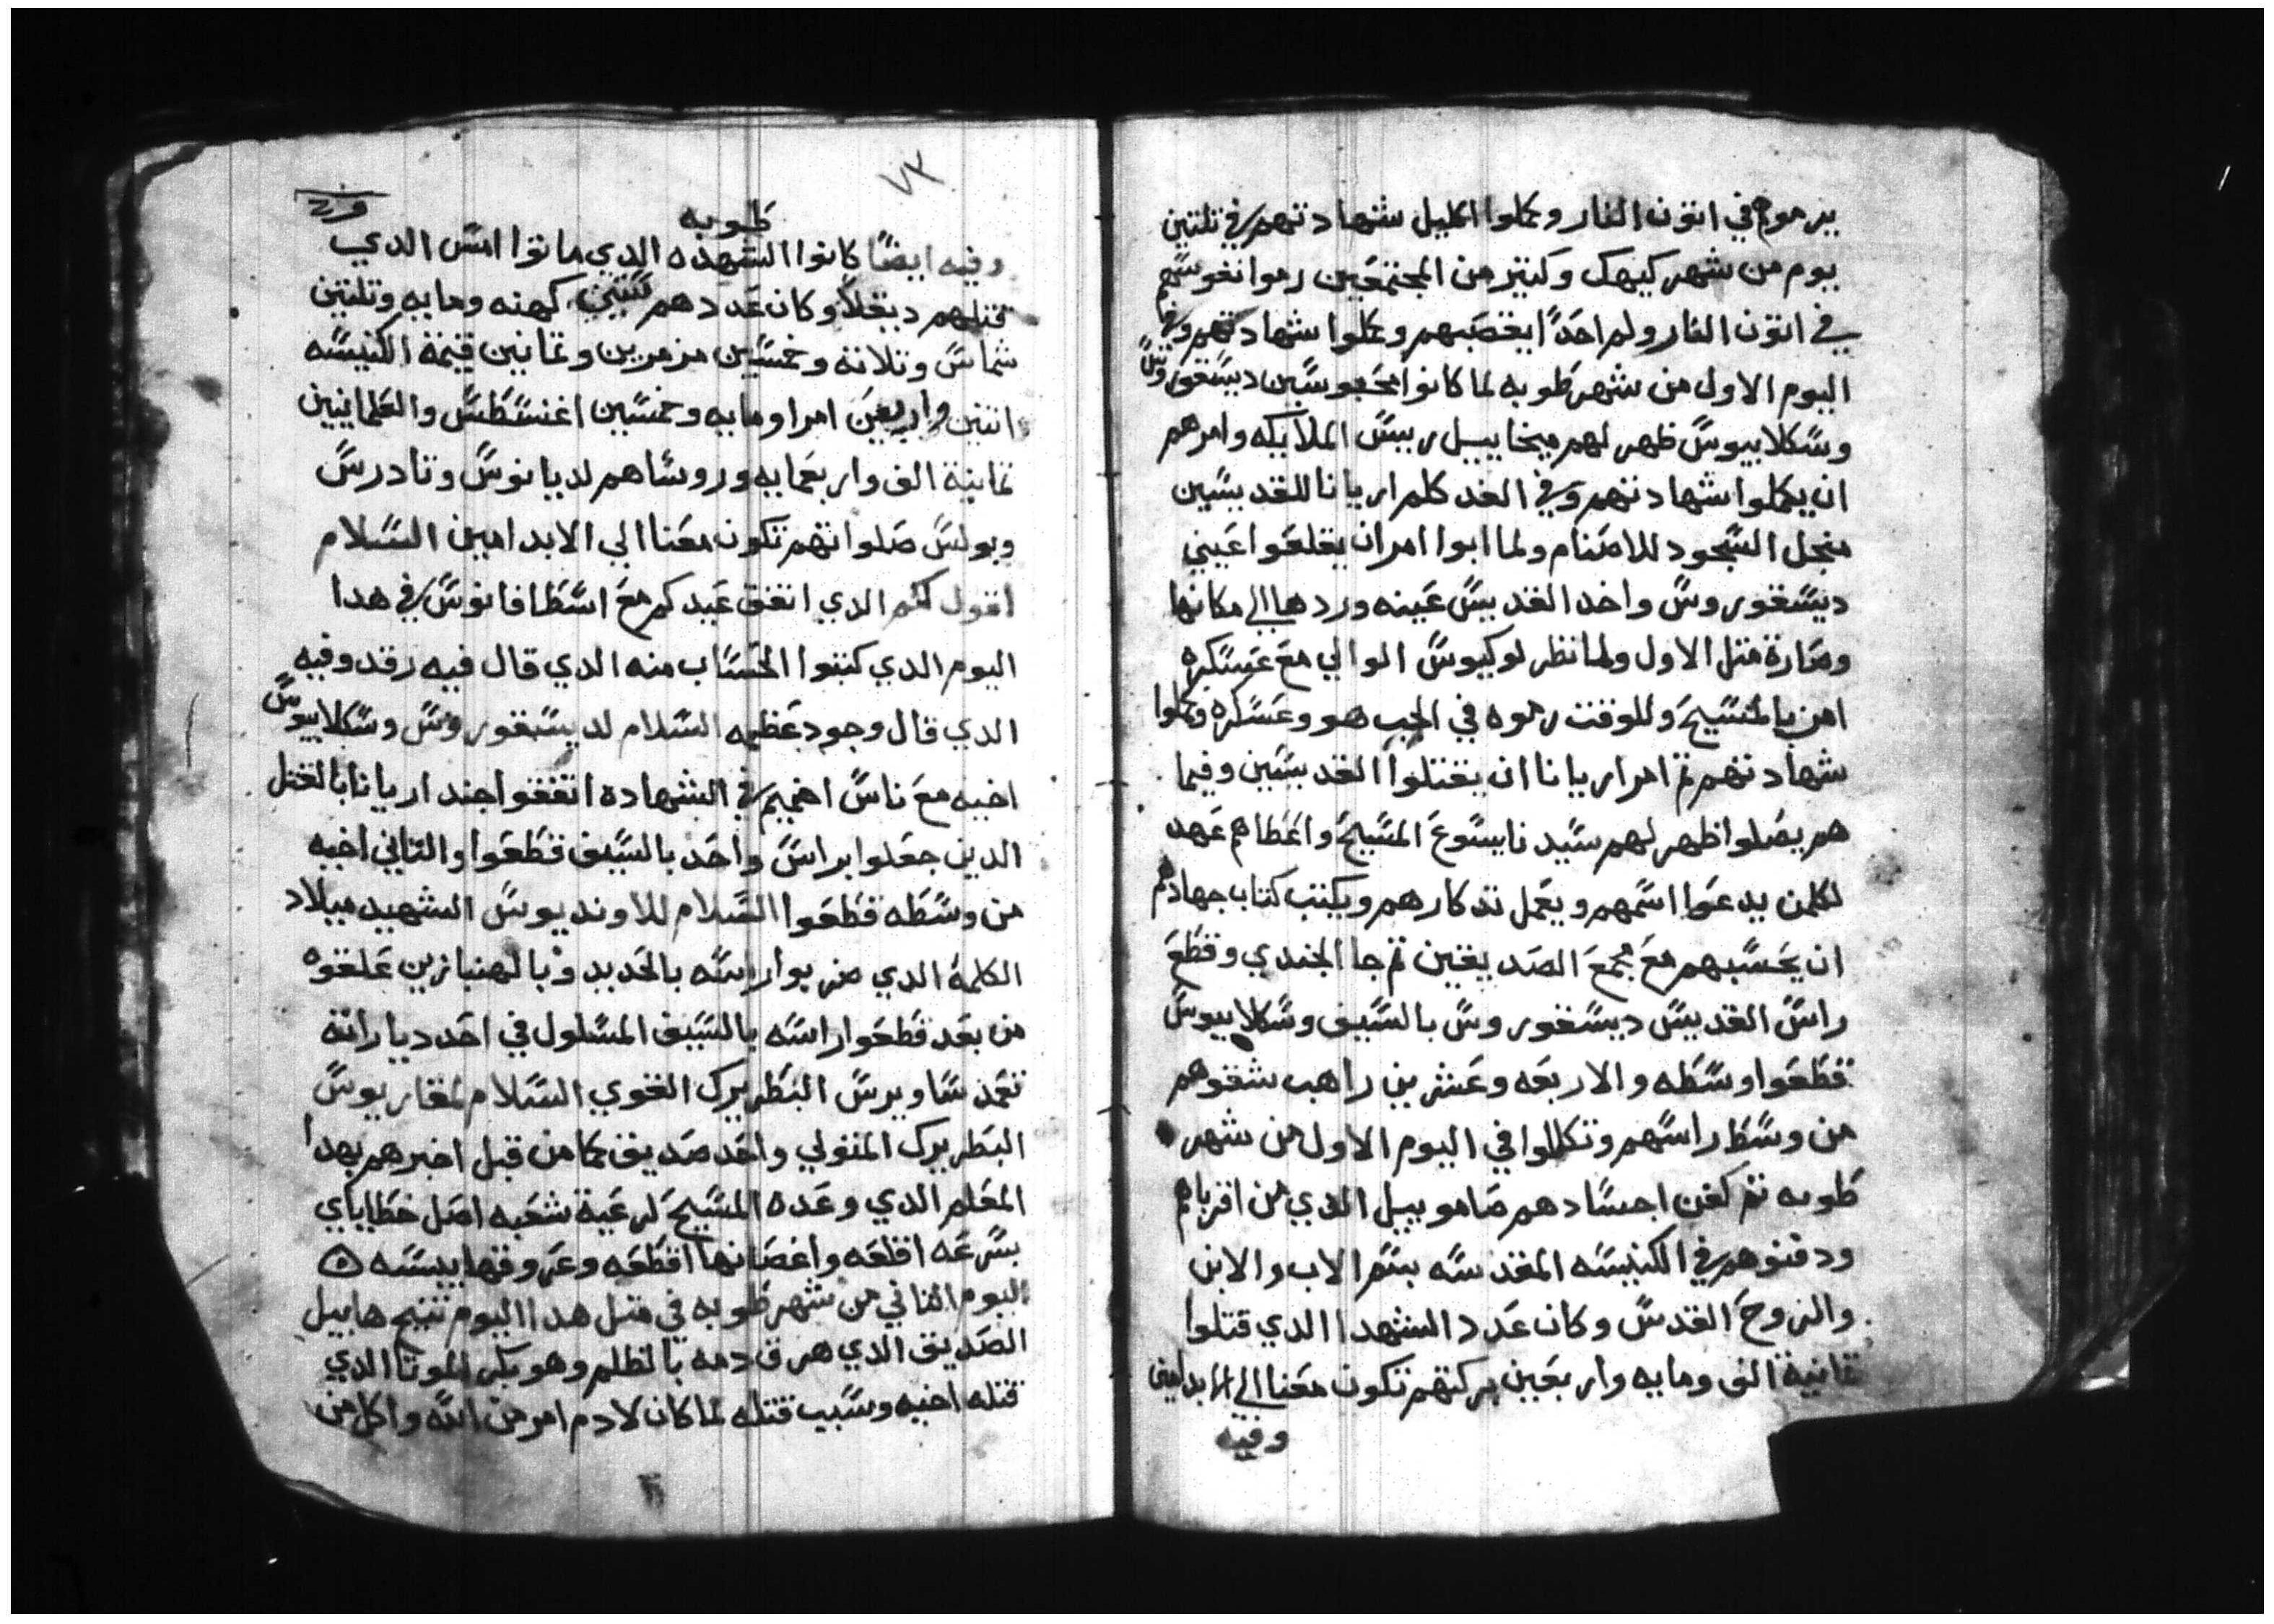 يرموهم في اتون النار وكملوا اكليل شهادتهم في تلتين
يوم من شهر كيهك وكتير من المجتمعين رموا نفوسهم
في اتون النار ولم احدًا يغصبهم وكملوا شهادتهم وفي
اليوم الاول من شهر طوبه لما كانوا محبوسين ديسقوروس
وسكلابيوس ظهر لهم ميخاييل رييس الملايكه وامرهم
ان يكملوا شهادتهم وفي الغد كلم اريانا للقديسين
منجل السجود للاصنام ولما ابوا امر ان يقلعوا عيني
ديسقوروس واخد القديس عينه وردها الي مكانها
وصارة متل الاول ولما نظر لوكيوس الوالي مع عسكره
امن بالمسيح وللوقت رموه في الجب هو وعسكره وكملوا
شهادتهم تم امر اريانا ان يقتلوا القديسين وفيما
هم يصلوا ظهر لهم سيدنا يسوع المسيح واعطاهم عهد
لكلمن يدعوا اسمهم ويعمل تدكارهم ويكتب كتاب جهادهم
ان يحسبهم مع مجمع الصديقين تم جا الجندي وقطع
راس القديس ديسقوروس بالسيف وسكلابيوس
قطعوا وسطه والاربعه وعشرين راهب شقوهم
من وسط راسهم وتكللوا في اليوم الاول من شهر
طوبه تم كفن اجسادهم صاموييل الدي من اقرباهم
ودفنوهم في الكنيسه المقدسه بسم الاب والابن
والروح القدس وكان عدد الشهدا الدي قتلوا
تمانية الف ومايه واربعين بركتهم تكون معنا الي الابد امين
وفيه
٧٣
طوبه
وفيه ايضًا كانوا الشهده الدي ماتوا امس الدي
قتلهم دبقلا وكان عددهم ستين كهنه ومايه وتلتين
شماس وتلاتة وخمسين مزمرين وتمانين قيمة الكنيسه
اتنين واربعين امرا ومايه وخمسين اغنسطس والعلمانيين
تمانية الف واربعمايه وروساهم لديانوس وتادرس
وبولس صلواتهم تكون معنا الي الابد امين السلام
اقول لكم الدي اتفق عيدكم مع اسطافانوس في هدا
اليوم الدي كتبوا الحساب منه الدي قال فيه رقد وفيه
الدي قال وجود عظيمه السلام لديسقوروس وسكلابيوس
اخيه مع ناس اخميم في الشهادة اتفقوا جند اريانا بالقتل
الدين جعلوا براس واحد بالسيف قطعوا والتاني اخيه
من وسطه قطعوا السلام للاونديوس الشهيد ميلاد
الكلمة الدي ضربوا راسه بالحديد وبالهنبازين علقوه
من بعد قطعوا راسه بالسيف المسلول في احد دياراته
تعمد ساويرس البطريرك القوي السلام لمقاريوس
البطريرك المتولي واحد صديق كما من قبل اخبرهم بهدا
المعلم الدي وعده المسيح لرعية شعبه اصل خطاياي
بسرعه اقلعه واغصانها اقطعه وعروقها ييسه ه
اليوم التاني من شهر طوبه في متل هدا اليوم تنيح هابيل
الصديق الدي هرق دمه بالظلم وهو بكر الموتا الدي
قتله اخيه وسبب قتله لما كان لادم امر من الله واكل من